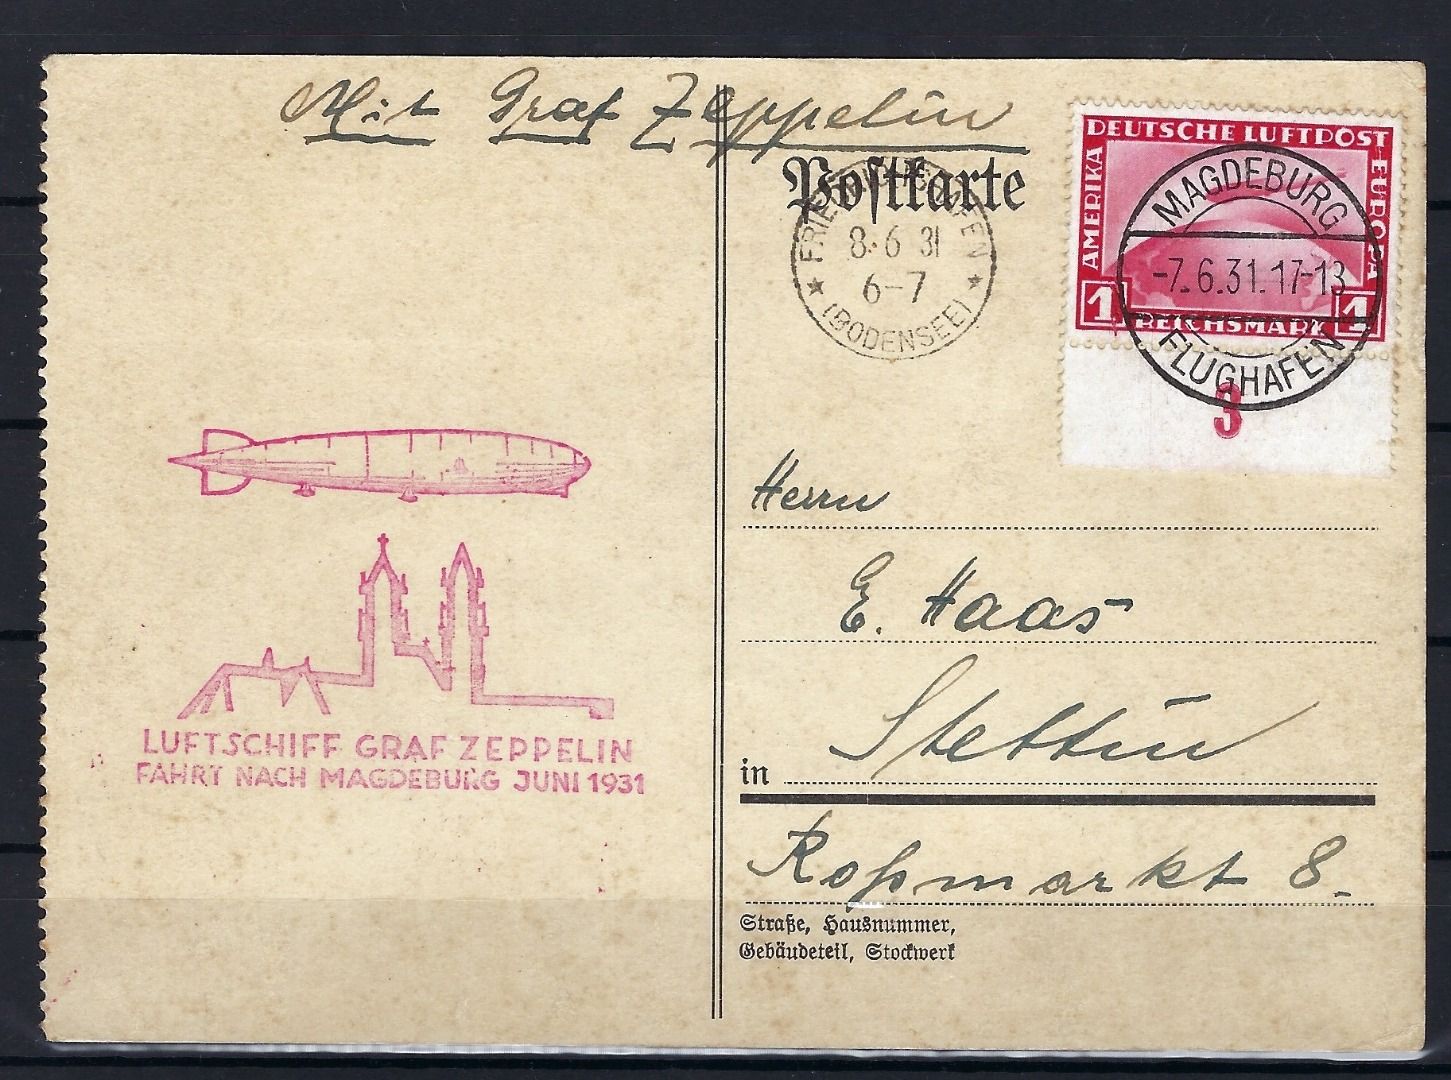 Mit Graf Zeppelin
Postkarte
FRIEDRICHSHAFEN
8.6 31
6-7
(BODENSEE)
DEUTSCHE LUFTPOST
AMERIKA
EUROPA
1 REICHSMARK 1
MAGDEBURG
-7.6.31.17-18
FLUGHAFEN
3
Herrn
E. Haas
in Stettin
Roßmarkt 8.
Straße, Hausnummer,
Gebäudeteil, Stockwerk
LUFTSCHIFF GRAF ZEPPELIN
FAHRT NACH MAGDEBURG JUNI 1931